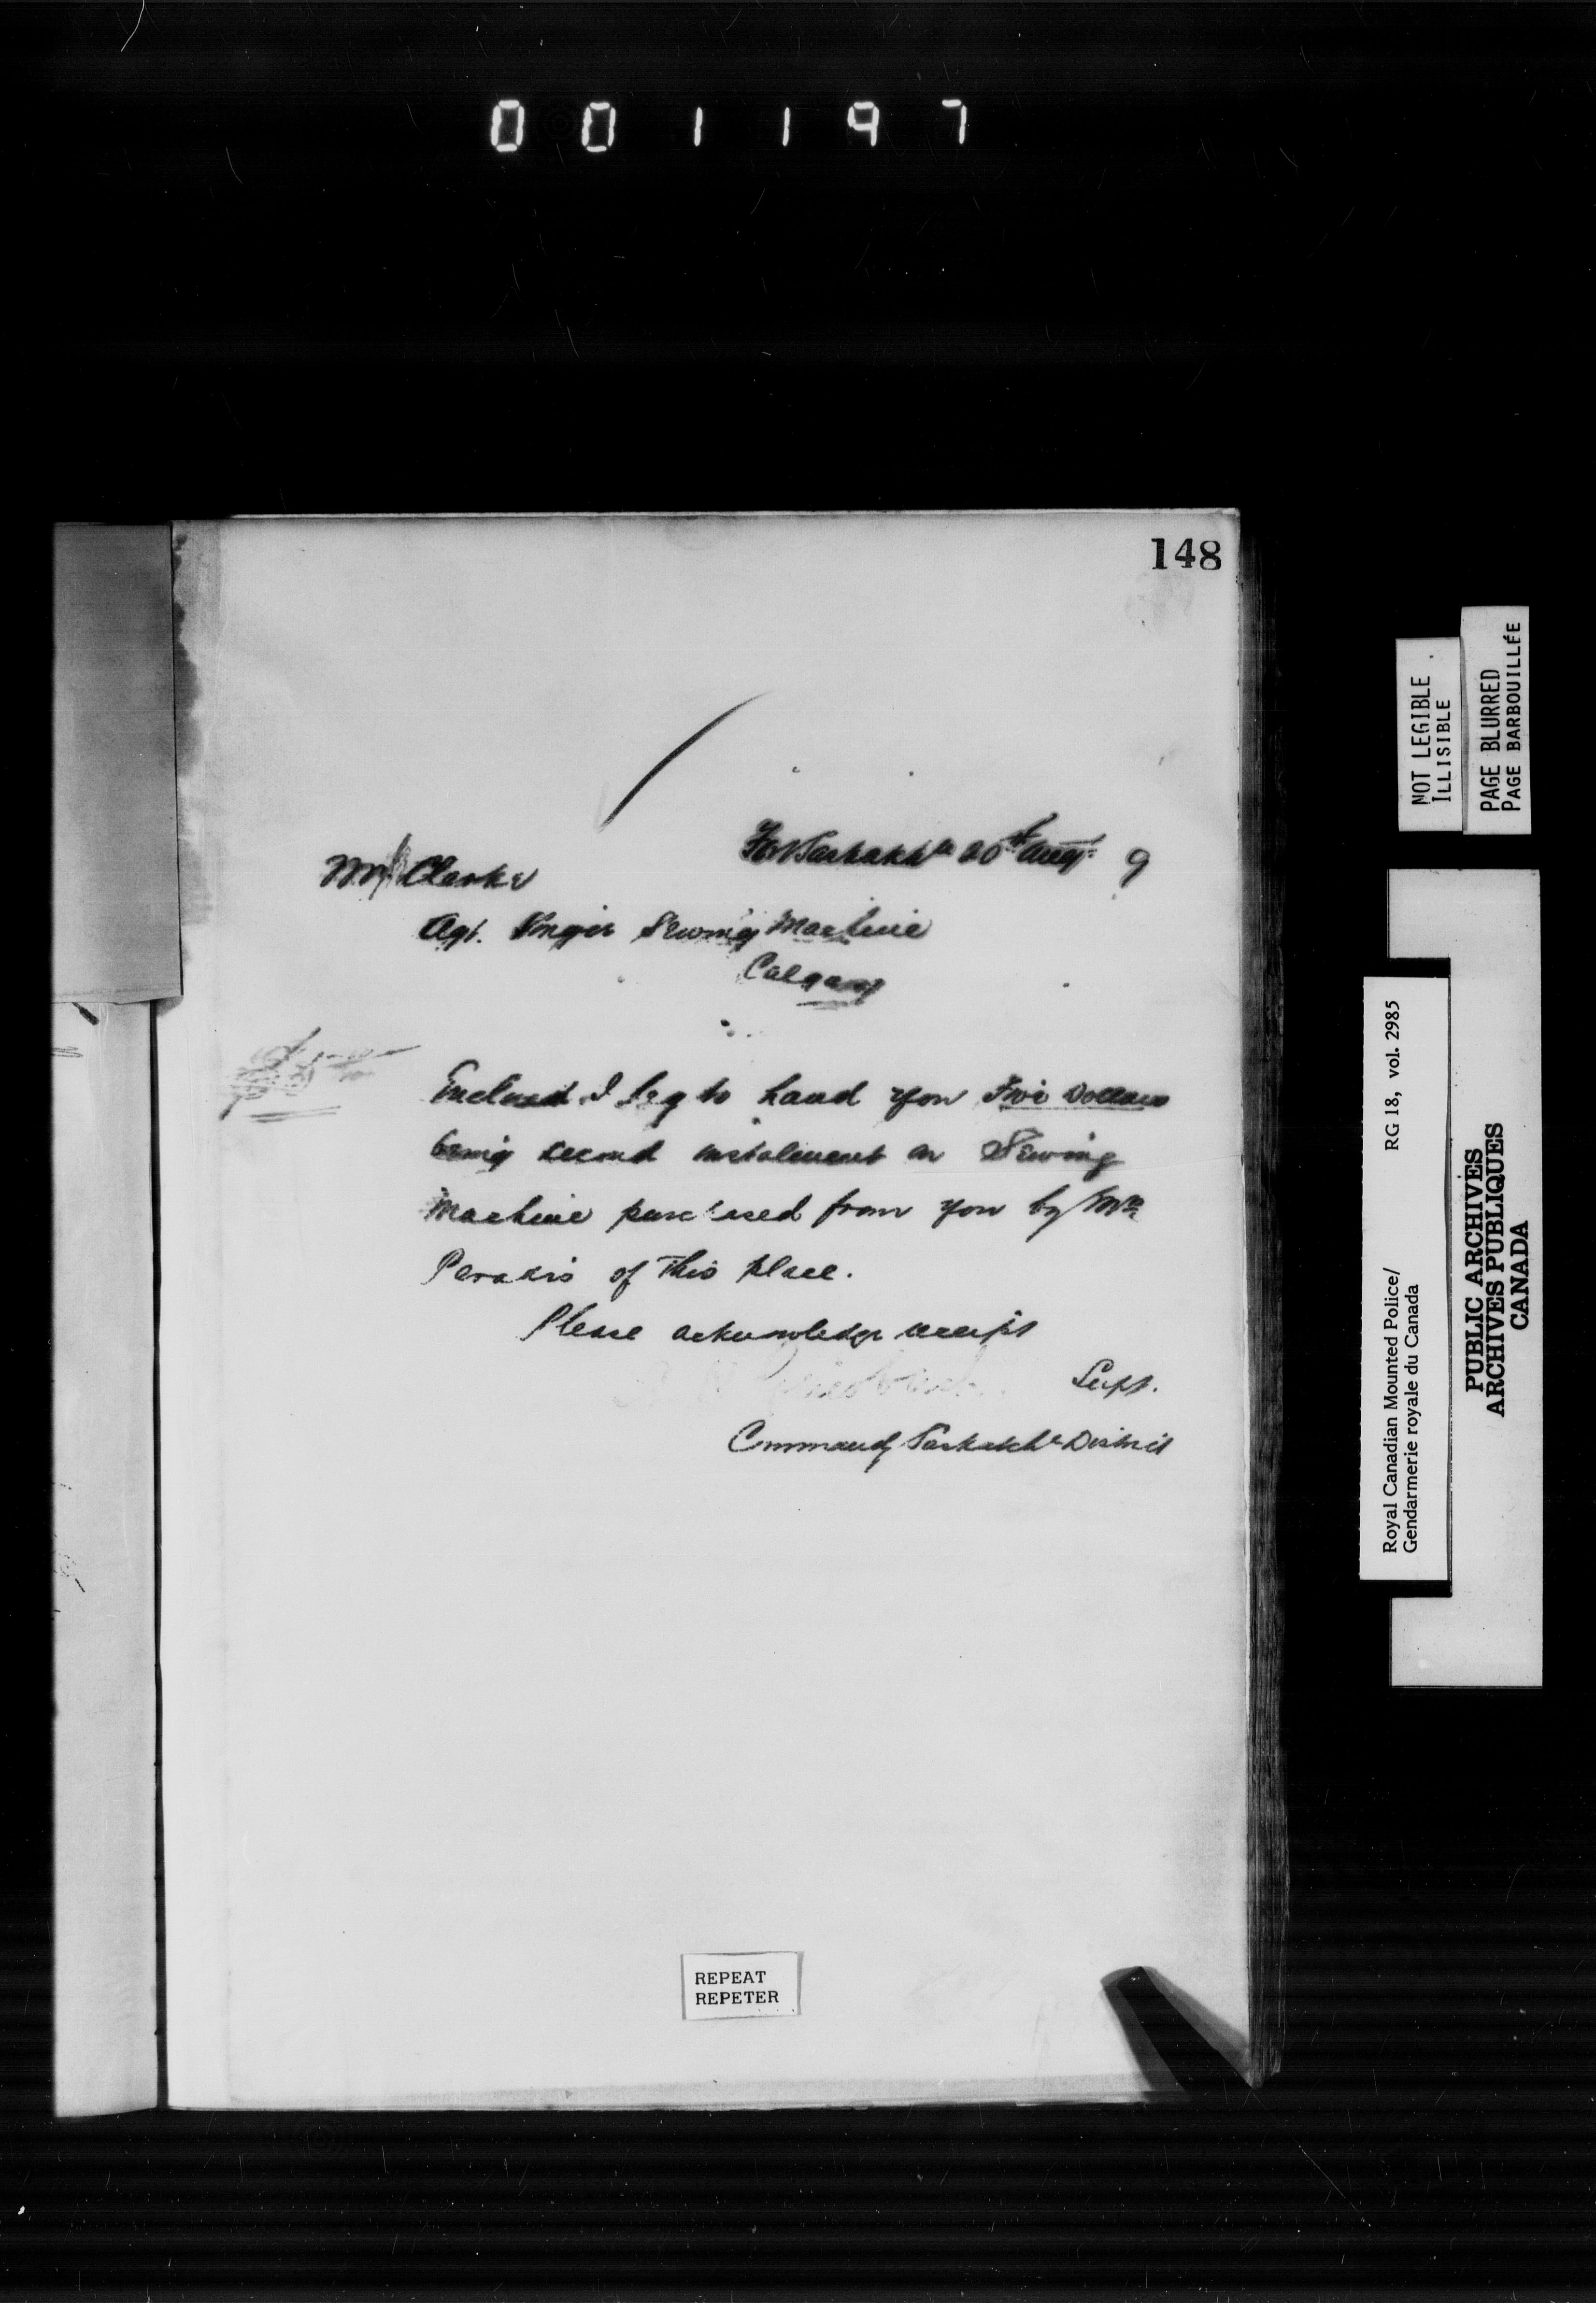 001197
148
Ft Saskatchn 20th Augt 9
Mr Clarke
Agt. Singer Sewing Machine
Calgary
Enclosed I beg to hand you Five Dollars
being second instalment on Sewing
Machine purchased from you by Mrs
Paradis of this place.
Please acknowledge receipt
Supt.
Commandg Saskatchn District
REPEAT
REPETER
NOT LEGIBLE
ILLISIBLE
PAGE BLURRED
PAGE BARBOUILLÉE
Royal Canadian Mounted Police/ RG 18, vol. 2985
Gendarmerie royale du Canada
PUBLIC ARCHIVES
ARCHIVES PUBLIQUES
CANADA